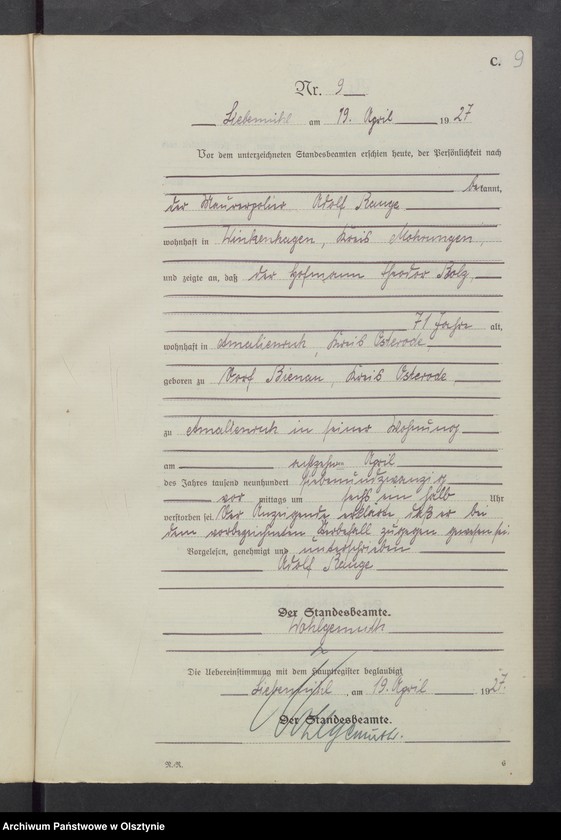 C. 9
Nr. 9
Liebemühl am 19. April 1927
Vor dem unterzeichneten Standesbeamten erschien heute, der Persönlichkeit nach
bekannt,
der Maurerpolier Adolf Range
wohnhaft in Winkenhagen, Kreis Mohrungen,
und zeigte an, daß der Hofmann Theodor Bolz,
71 Jahre alt,
wohnhaft in Amalienruh, Kreis Osterode
geboren zu Dorf Bienau, Kreis Osterode,
zu Amalienruh in seiner Wohnung
am achtzehn April
des Jahres tausend neunhundert siebenundzwanzig
vor mittags um sechs ein halb Uhr
verstorben sei. Der Anzeigende erklärte, daß er bei
dem vorbezeichneten Sterbefall zugegen gewesen sei.
Vorgelesen, genehmigt und unterschrieben
Adolf Range
Der Standesbeamte.
Wohlgemuth
Die Uebereinstimmung mit dem Hauptregister beglaubigt
Liebemühl, am 19. April 1927.
Der Standesbeamte.
Wohlgemuth.
R.-R. 6
Archiwum Państwowe w Olsztynie